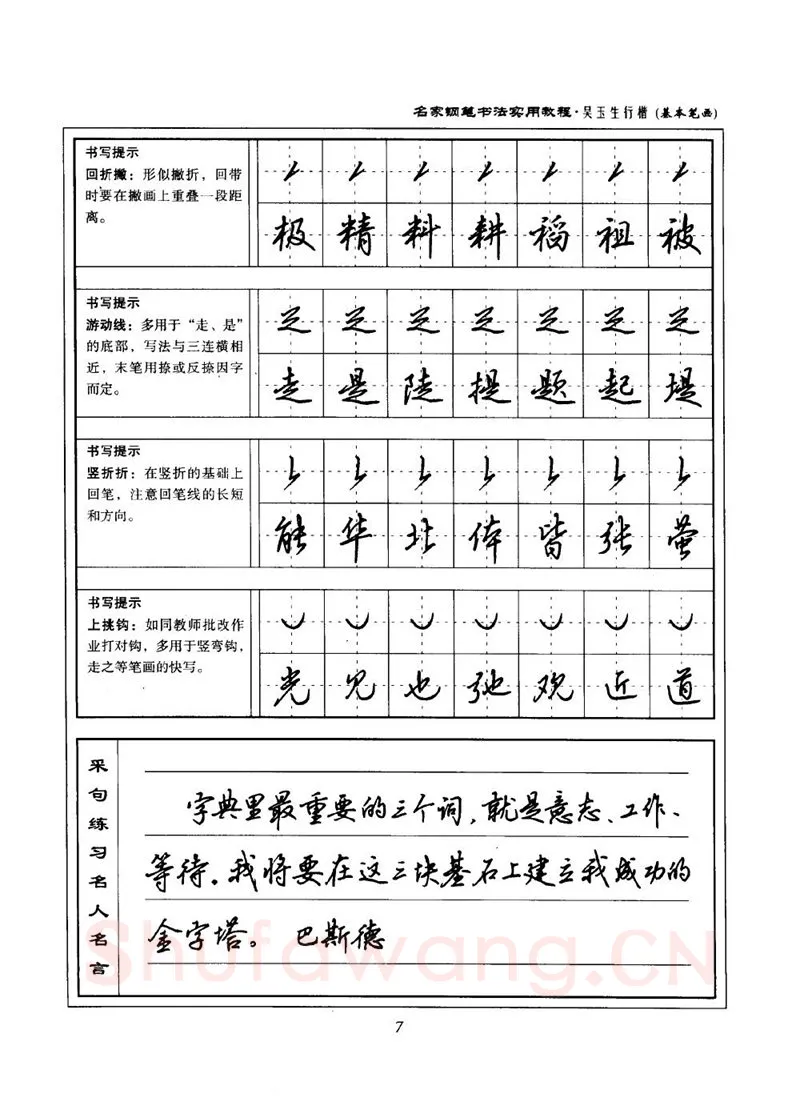 名家钢笔书法实用教程·吴玉生行楷(基本笔画)
书写提示
回折撇：形似撇折，回带
时要在撇画上重叠一段距
离。
极 精 料 耕 稻 祖 被
书写提示
游动线：多用于“走、是”
的底部，写法与三连横相
近，末笔用捺或反捺因字
而定。
走 是 陡 提 题 起 堤
书写提示
竖折折：在竖折的基础上
回笔，注意回笔线的长短
和方向。
能 华 北 体 皆 张 萤
书写提示
上挑钩：如同教师批改作
业打对钩，多用于竖弯钩，
走之等笔画的快写。
光 见 也 弛 观 近 道
采句练习名人名言
字典里最重要的三个词，就是意志、工作、
等待。我将要在这三块基石上建立我成功的
金字塔。 巴斯德
Shufawang.CN
7